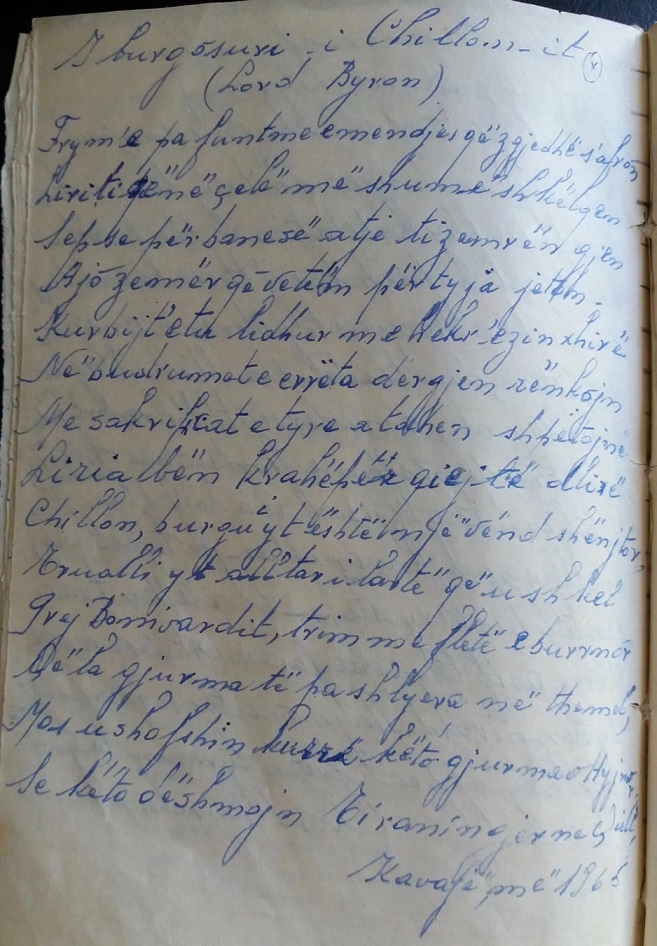 I burgôsuri i Chillon-it (x)
(Lord Byron)
Frym'e pa funtme e mendjes që zgjedhë s'afron
Liri ti në çelë më shumë shkëlqen
Sepse për banesë atje ti zemrën gjen
Ajó zemër që vetëm për ty ja jetën.
Kur bijt'etu lidhur me hekr'e zinxhirë
Në budrumet e errëta dergjen rënkojn
Me sakrificat e tyre atdhen shpëtojnë
Liria lbën krahë për gjejtë dlirë
Chillon, burgu yt është një vënd shënjtor,
Trualli yt alltar i lartë që u shkel
Prej Bonivardit, trim me fletë e burrnór
Që la gjurma të pashlyera në themel,
Mos u shofshin kurrë këtó gjurma Hyjnor,
Se këtó dëshmojn Tiranín gjer në qiell,
Kavajë më 1966